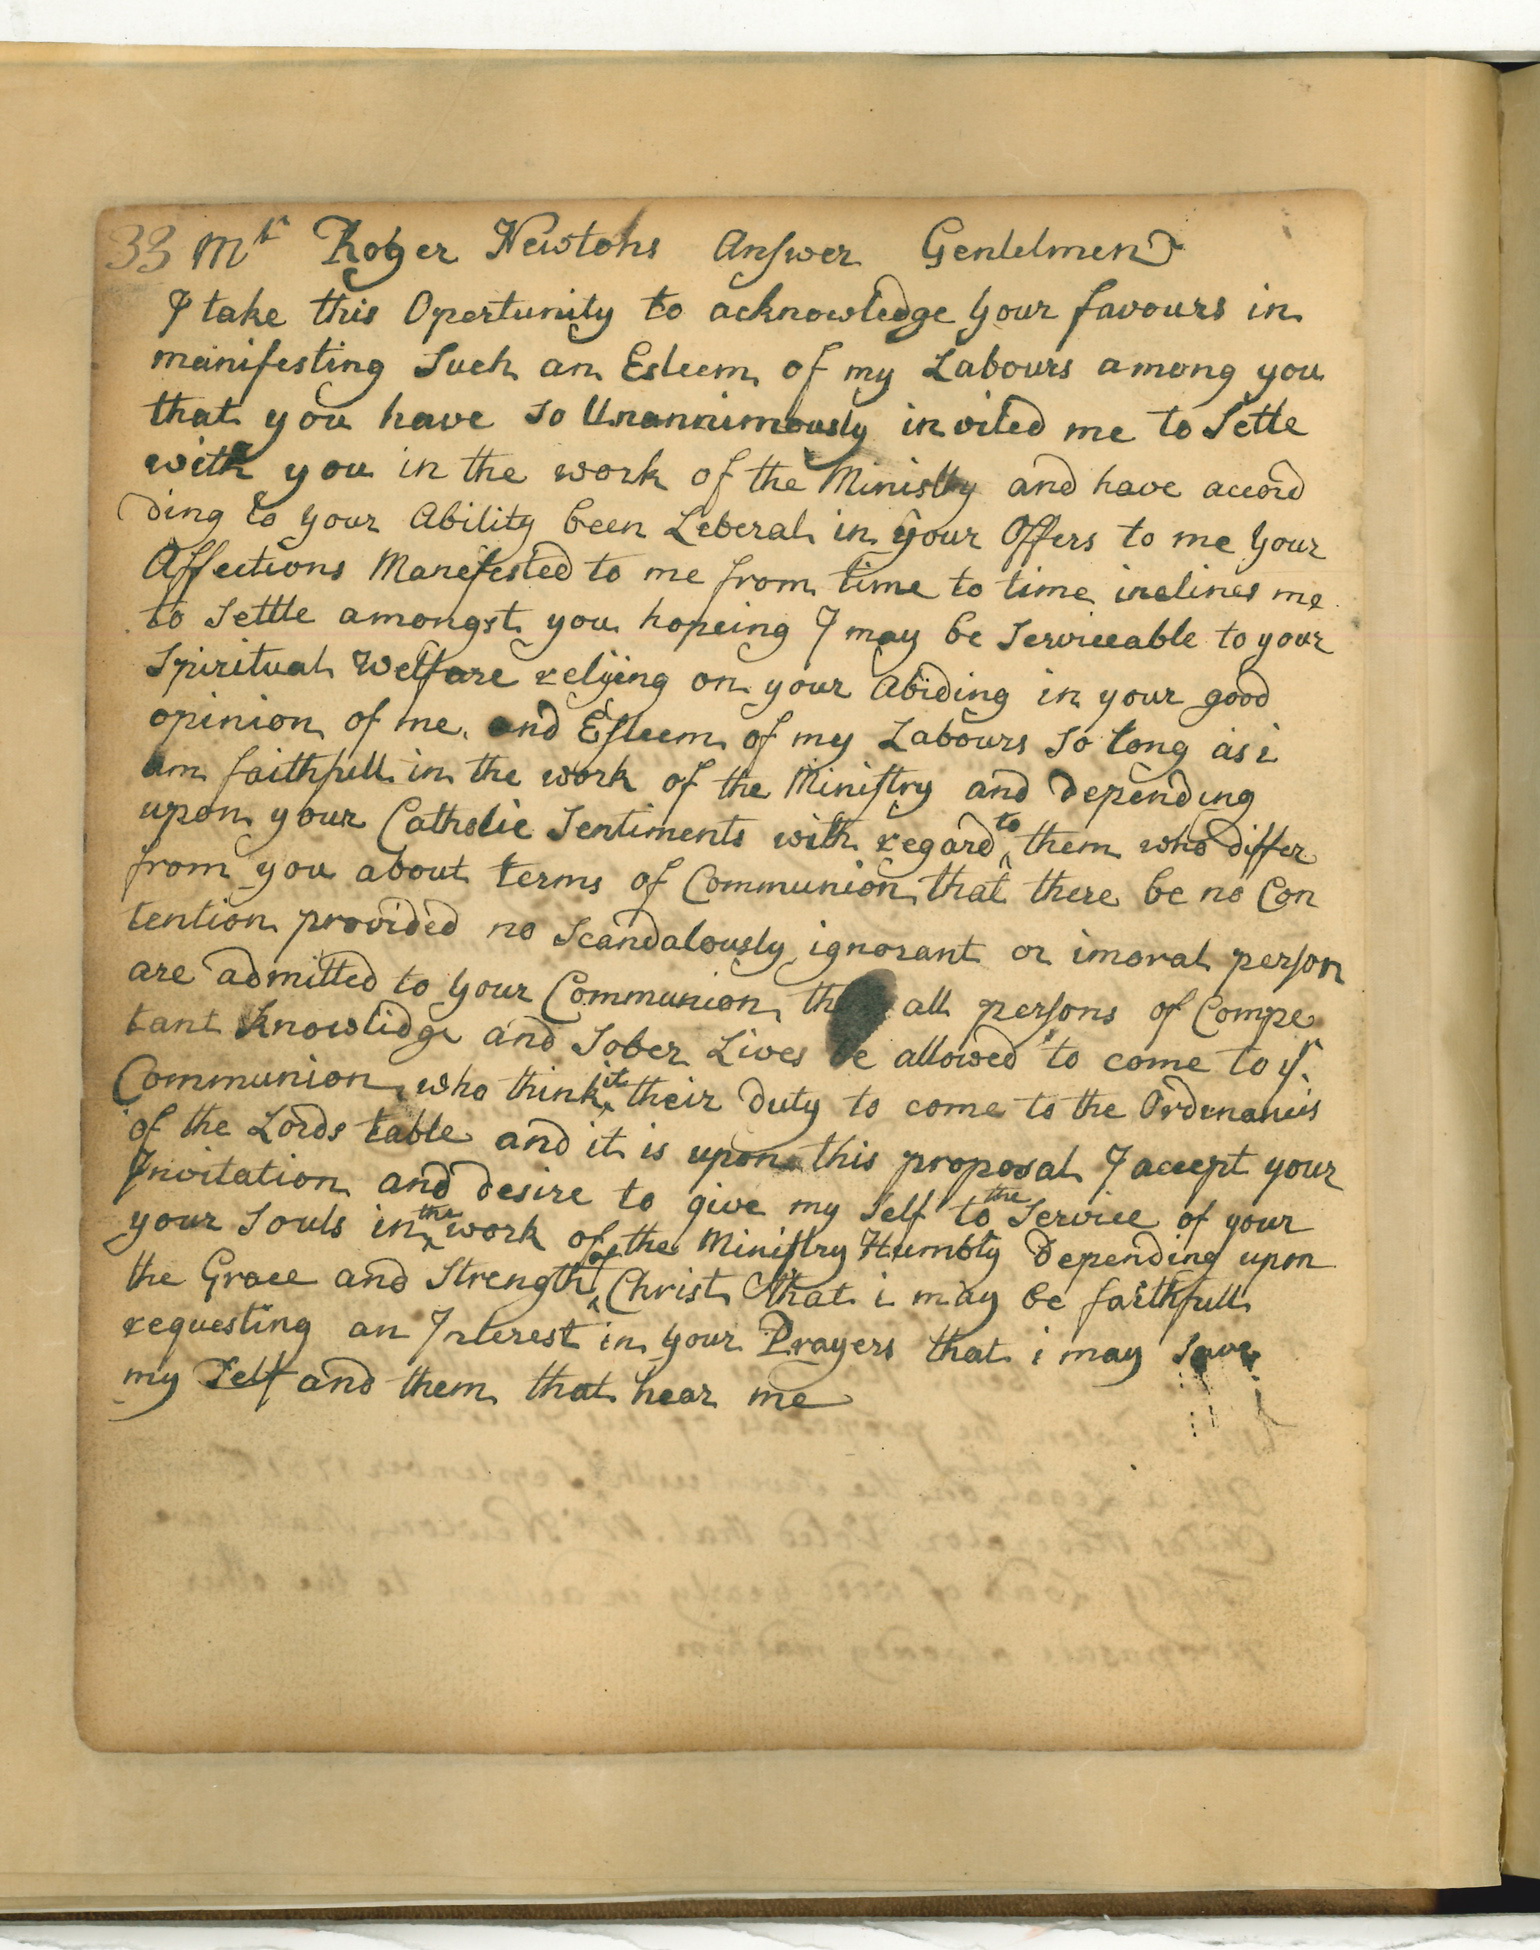 33 Mr Roger Newtons Answer Gentelmen
I take this Opertunity to acknowledge your favours in
manifesting Such an Esteem of my Labours among you
that you have So Unannimously invited me to Settle
with you in the work of the Ministry and have accord
ding to your Ability been Leberal in your Offers to me your
Affections Manefested to me from time to time inclines me
to Settle amongst you hopeing I may be Serviceable to your
Spiritual Welfare relying on your Abiding in your good
opinion of me and Esteem of my Labours So long as i
am faithfull in the work of the Ministry and depending
upon your Catholic Sentiments with regard to them who differ
from you about terms of Communion that there be no Con
tention provided no Scandalously ignorant or imoral person
are admitted to your Communion all persons of Compe
tant Knowlidge and Sober Lives be allowed to come to yr
Communion who think it their duty to come to the Ordenancis
of the Lords table and it is upon this proposal I accept your
Invitation and desire to give my Self to the Service of your
your Souls in the work of the Ministry Humbly Depending upon
the Grace and Strength of Christ that i may be faithfull
requesting an Interest in your Prayers that i may Save
my Self and them that hear me